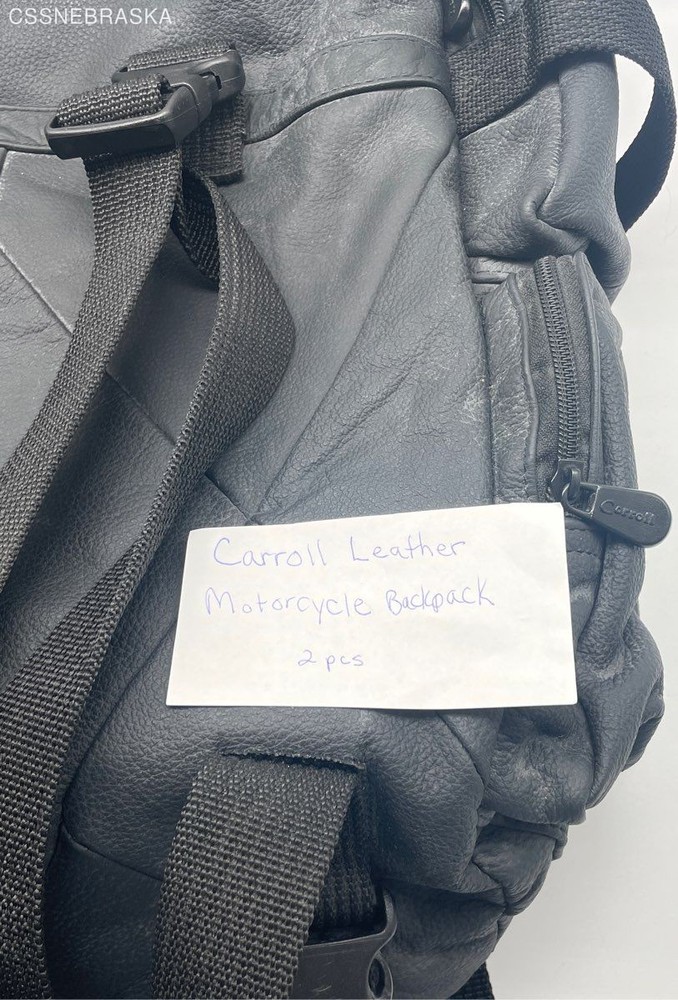 CSSNEBRASKA
Carroll
Carroll Leather
Motorcycle Backpack
2 pcs